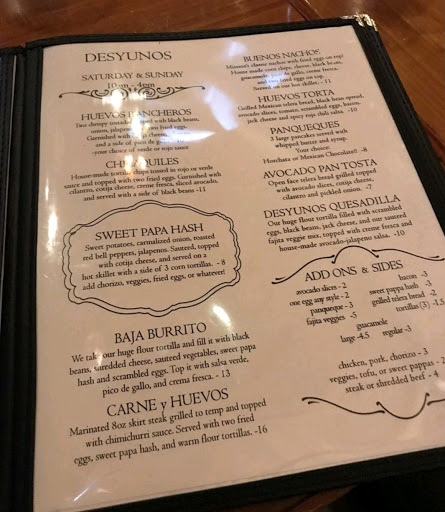 DESYUNOS
SATURDAY & SUNDAY
10am - 4pm
HUEVOS RANCHEROS
Two crispy tostadas topped with black beans,
onion, jalapenos, fried eggs.
Garnished with cotija cheese,
and a side of pan de
-your choice of verde or rojo sauce
CHILAQUILES
House-made tortilla chips tossed in rojo or verde
sauce and topped with two fried eggs. Garnished with
cilantro, cotija cheese, creme fresca, sliced avocado,
and served with a side of black beans -11
SWEET PAPA HASH
Sweet potatoes, carmalized onion, roasted
red bell peppers, jalapenos. Sauteed, topped
with cotija cheese, and served on a
hot skillet with a side of 3 corn tortillas. - 8
add chorizo, veggies, fried eggs, or whatever!
BAJA BURRITO
We take our huge flour tortilla and fill it with black
beans, shredded cheese, sauteed vegetables, sweet papa
hash and scrambled eggs. Top it with salsa verde,
pico de gallo, and crema fresca. - 13
CARNE y HUEVOS
Marinated 8oz skirt steak grilled to temp and topped
with chimichurri sauce. Served with two fried
eggs, sweet papa hash, and warm flour tortillas. -16
BUENO NACHOS
cheese nachos with fried eggs on top!
House made corn chips, cheese, black beans,
guacamole, pico de gallo, creme fresca,
and two fried eggs on top.
Served on our hot skillet. - 11
HUEVOS TORTA
Grilled Mexican telera bread, black bean spread,
avocado slices, tomato, scrambled eggs, bacon,
jack cheese and spicy rojo chili salsa. -10
PANQUEQUES
3 large pancakes served with
whipped butter and syrup.
Your choice:
Horchata or Mexican Chocolate!! -8
AVOCADO PAN TOSTA
Open face telera bread grilled topped
with avocado slices, cotija cheese,
cilantro and pickled onion. -7
DESYUNOS QUESADILLA
Our huge flour tortilla filled with scrambled
eggs, black beans, jack cheese, and our sauteed
fajita veggie mix. topped with creme fresca and
house-made avocado-jalapeno salsa. -10
ADD ONS & SIDES
avocado slices - 2
one egg any style - 2
panqueque - 3
fajita veggies -5
bacon -3
sweet papa hash -3
grilled telera bread -2
tortillas (3) -1.5
guacamole
large -4.5 regular -3
chicken, pork, chorizo - 3
veggies, tofu, or sweet pappas - 2
steak or shredded beef - 4